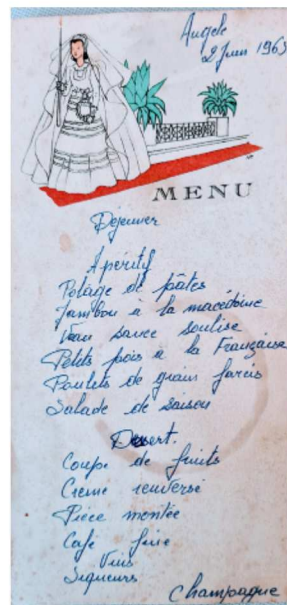 Angele
2 Juin 1963
MENU
Déjeuner
Apéritif
Potage de pâtes
Jambon à la macédoine
Veau sauce soulise
Petits pois à la Française
Poulets de grain farcis
Salade de saison
Dessert.
Coupe de fruits
Creme renversé
Pièce montée
Café fine
Vins
Liqueurs
Champagne